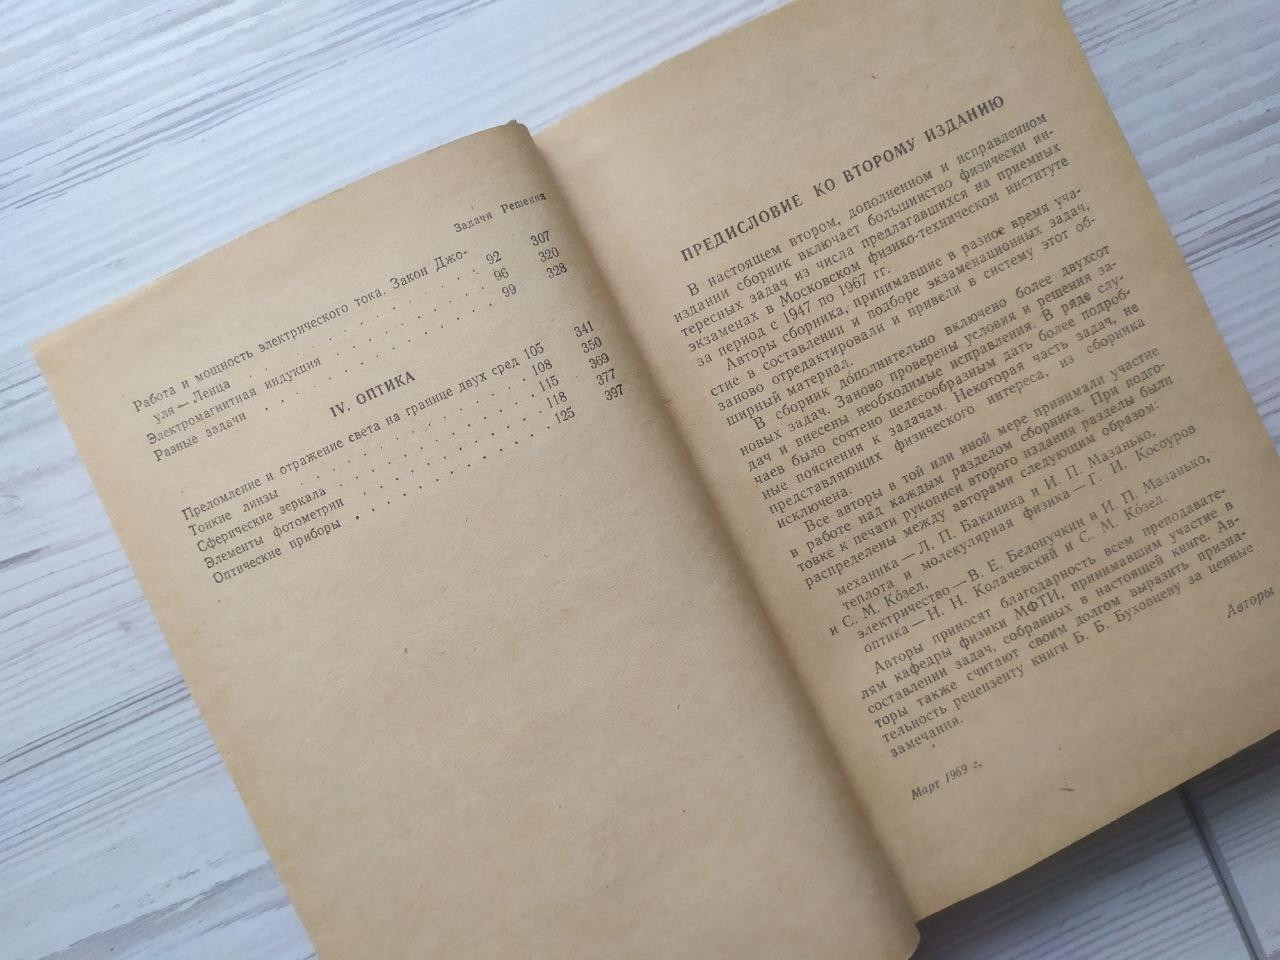 Задачи Решения
Работа и мощность электрического тока. Закон Джо-
уля — Ленца . . . . . . . . . . . . 92 307
Электромагнитная индукция . . . . . . . . . 96 320
Разные задачи . . . . . . . . . . . . 99 328
IV. ОПТИКА
Преломление и отражение света на границе двух сред 105 341
Тонкие линзы . . . . . . . . . . . . 108 350
Сферические зеркала . . . . . . . . . . . 115 369
Элементы фотометрии . . . . . . . . . . . 118 377
Оптические приборы . . . . . . . . . . . 125 397
ПРЕДИСЛОВИЕ КО ВТОРОМУ ИЗДАНИЮ
В настоящем втором, дополненном и исправленном
издании сборник включает большинство физически ин-
тересных задач из числа предлагавшихся на приемных
экзаменах в Московском физико-техническом институте
за период с 1947 по 1967 гг.
Авторы сборника, принимавшие в разное время уча-
стие в составлении и подборе экзаменационных задач,
заново отредактировали и привели в систему этот об-
ширный материал.
В сборник дополнительно включено более двухсот
новых задач. Заново проверены условия и решения за-
дач и внесены необходимые исправления. В ряде слу-
чаев было сочтено целесообразным дать более подроб-
ные пояснения к задачам. Некоторая часть задач, не
представляющих физического интереса, из сборника
исключена.
Все авторы в той или иной мере принимали участие
в работе над каждым разделом сборника. При подго-
товке к печати рукописи второго издания разделы были
распределены между авторами следующим образом:
механика — Л. П. Баканина и И. П. Мазанько,
теплота и молекулярная физика — Г. И. Косоуров
и С. М. Ко́зел,
электричество — В. Е. Белонучкин и И. П. Мазанько,
оптика — Н. Н. Колачевский и С. М. Ко́зел.
Авторы приносят благодарность всем преподавате-
лям кафедры физики МФТИ, принимавшим участие в
составлении задач, собранных в настоящей книге. Ав-
торы также считают своим долгом выразить призна-
тельность рецензенту книги Б. Б. Буховцеву за ценные
замечания.
Авторы
Март 1969 г.